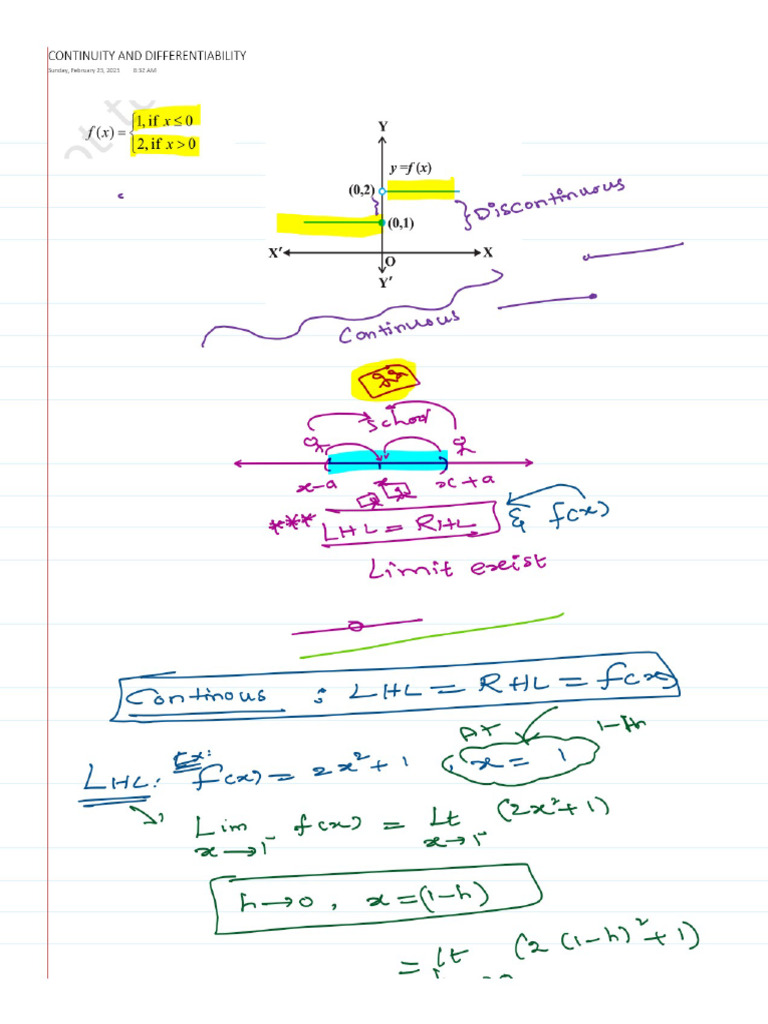 CONTINUITY AND DIFFERENTIABILITY
Sunday, February 23, 2025 8:32 AM
f(x) = {1, if x ≤ 0
2, if x > 0
Y
y = f(x)
(0,2)
(0,1)
Discontinuous
X′ O X
Y′
Continuous
School
x-a x x+a
*** LHL = RHL & f(x)
Limit exist
Continous : LHL = RHL = f(x)
AT 1-h
LHL: Ex: f(x) = 2x²+1, x = 1
Lim x→1⁻ f(x) = Lt x→1⁻ (2x²+1)
h→0, x=(1-h)
= Lt (2(1-h)²+1)